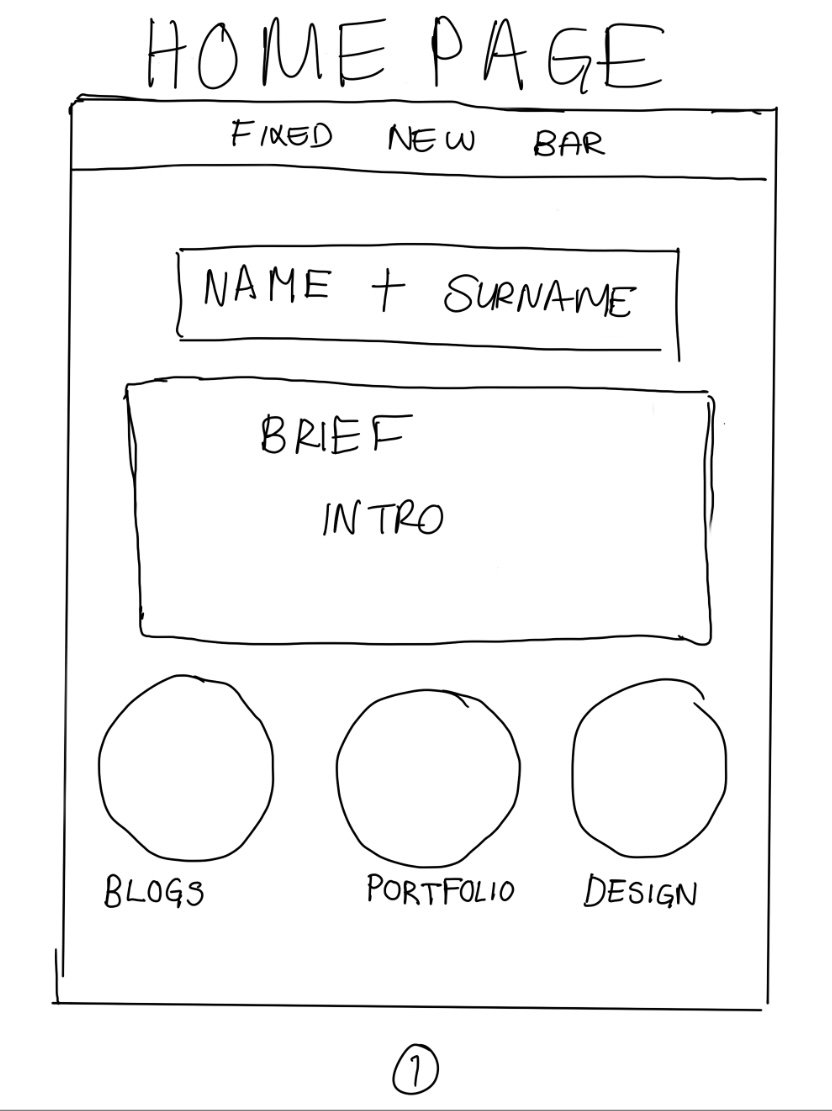 HOME PAGE
FIXED NEW BAR
NAME + SURNAME
BRIEF
INTRO
BLOGS PORTFOLIO DESIGN
1